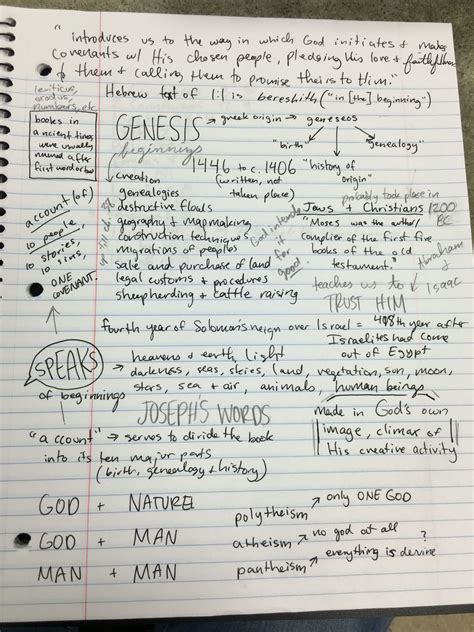 "introduces us to the way in which God initiates & makes
covenants w/ His chosen people, pledging his love & faithfulness
to them & calling them to promise theirs to Him."
leviticus,
exodus,
numbers, etc
Hebrew text of 1:1 is bereshith ("in [the] beginning")
books in
ancient times
were usually
named after
first word or two
GENESIS → greek origin → geneseos
beginnings
"birth"
"genealogy"
"history of
origin"
1446 to c. 1406
(written, not
taken place)
account (of)
10 people,
10 stories,
10 sins,
ONE
COVENANT.
creation
genealogies
destructive floods
geography & mapmaking
construction techniques
migrations of peoples
sale and purchase of land
legal customs & procedures
sheepherding & cattle raising
God intends
it for
good
probably took place in
1200
BC
Jews & Christians
"Moses was the author/
complier of the first five
books of the old
testament."
Abraham
↓
Isaac
teaches us to
TRUST HIM
fourth year of Solomon's reign over Israel = 480th year after
Israelites had come
out of Egypt
SPEAKS
of beginnings
→ heavens & earth, light
darkness, seas, skies, land, vegetation, sun, moon,
stars, sea & air, animals, human beings
JOSEPH'S WORDS
made in God's own
image, climax of
His creative activity
"account" → serves to divide the book
into its ten major parts
(birth, genealogy & history)
GOD + NATURE
GOD + MAN
MAN + MAN
polytheism → only ONE GOD
atheism → no god at all
?
pantheism → everything is devine